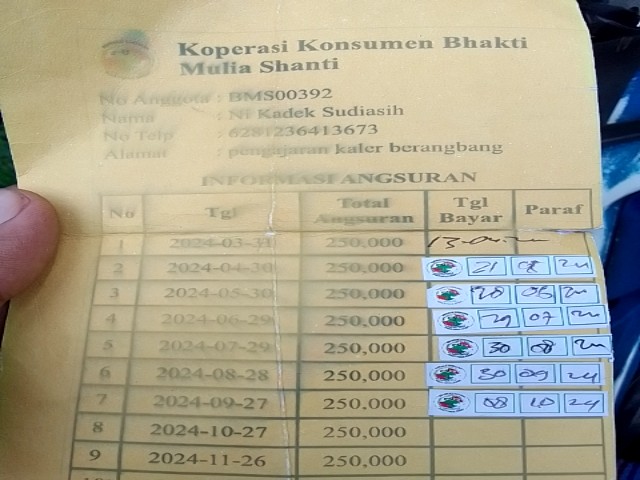 Koperasi Konsumen Bhakti
Mulia Shanti
No Anggota : BMS00392
Nama : Ni Kadek Sudiasih
No Telp : 6281236413673
Alamat : pengajaran kaler berangbang
INFORMASI ANGSURAN
No Tgl Total Angsuran Tgl Bayar Paraf
1 2024-03-31 250,000
2 2024-04-30 250,000 21
3 2024-05-30 250,000 06
4 2024-06-29 250,000 29 07
5 2024-07-29 250,000 30 08
6 2024-08-28 250,000 30 09 24
7 2024-09-27 250,000 08 10 24
8 2024-10-27 250,000
9 2024-11-26 250,000